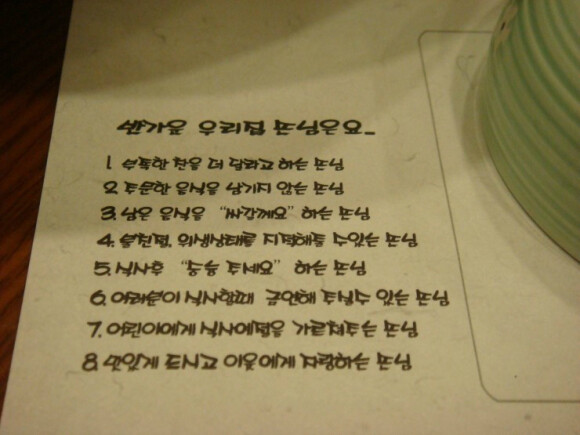 반가운 우리집 손님은요-
1. 부족한 찬을 더 달라고 하는 손님
2. 주문한 음식을 남기지 않는 손님
3. 남은 음식을 "싸갈께요" 하는 손님
4. 불친절, 위생상태를 지적해줄 수있는 손님
5. 식사후 "숭늉 주세요" 하는 손님
6. 어려분이 식사할때 금연해 주실수 있는 손님
7. 어린이에게 식사예절을 가르쳐주는 손님
8. 맛있게 드시고 이웃에게 자랑하는 손님